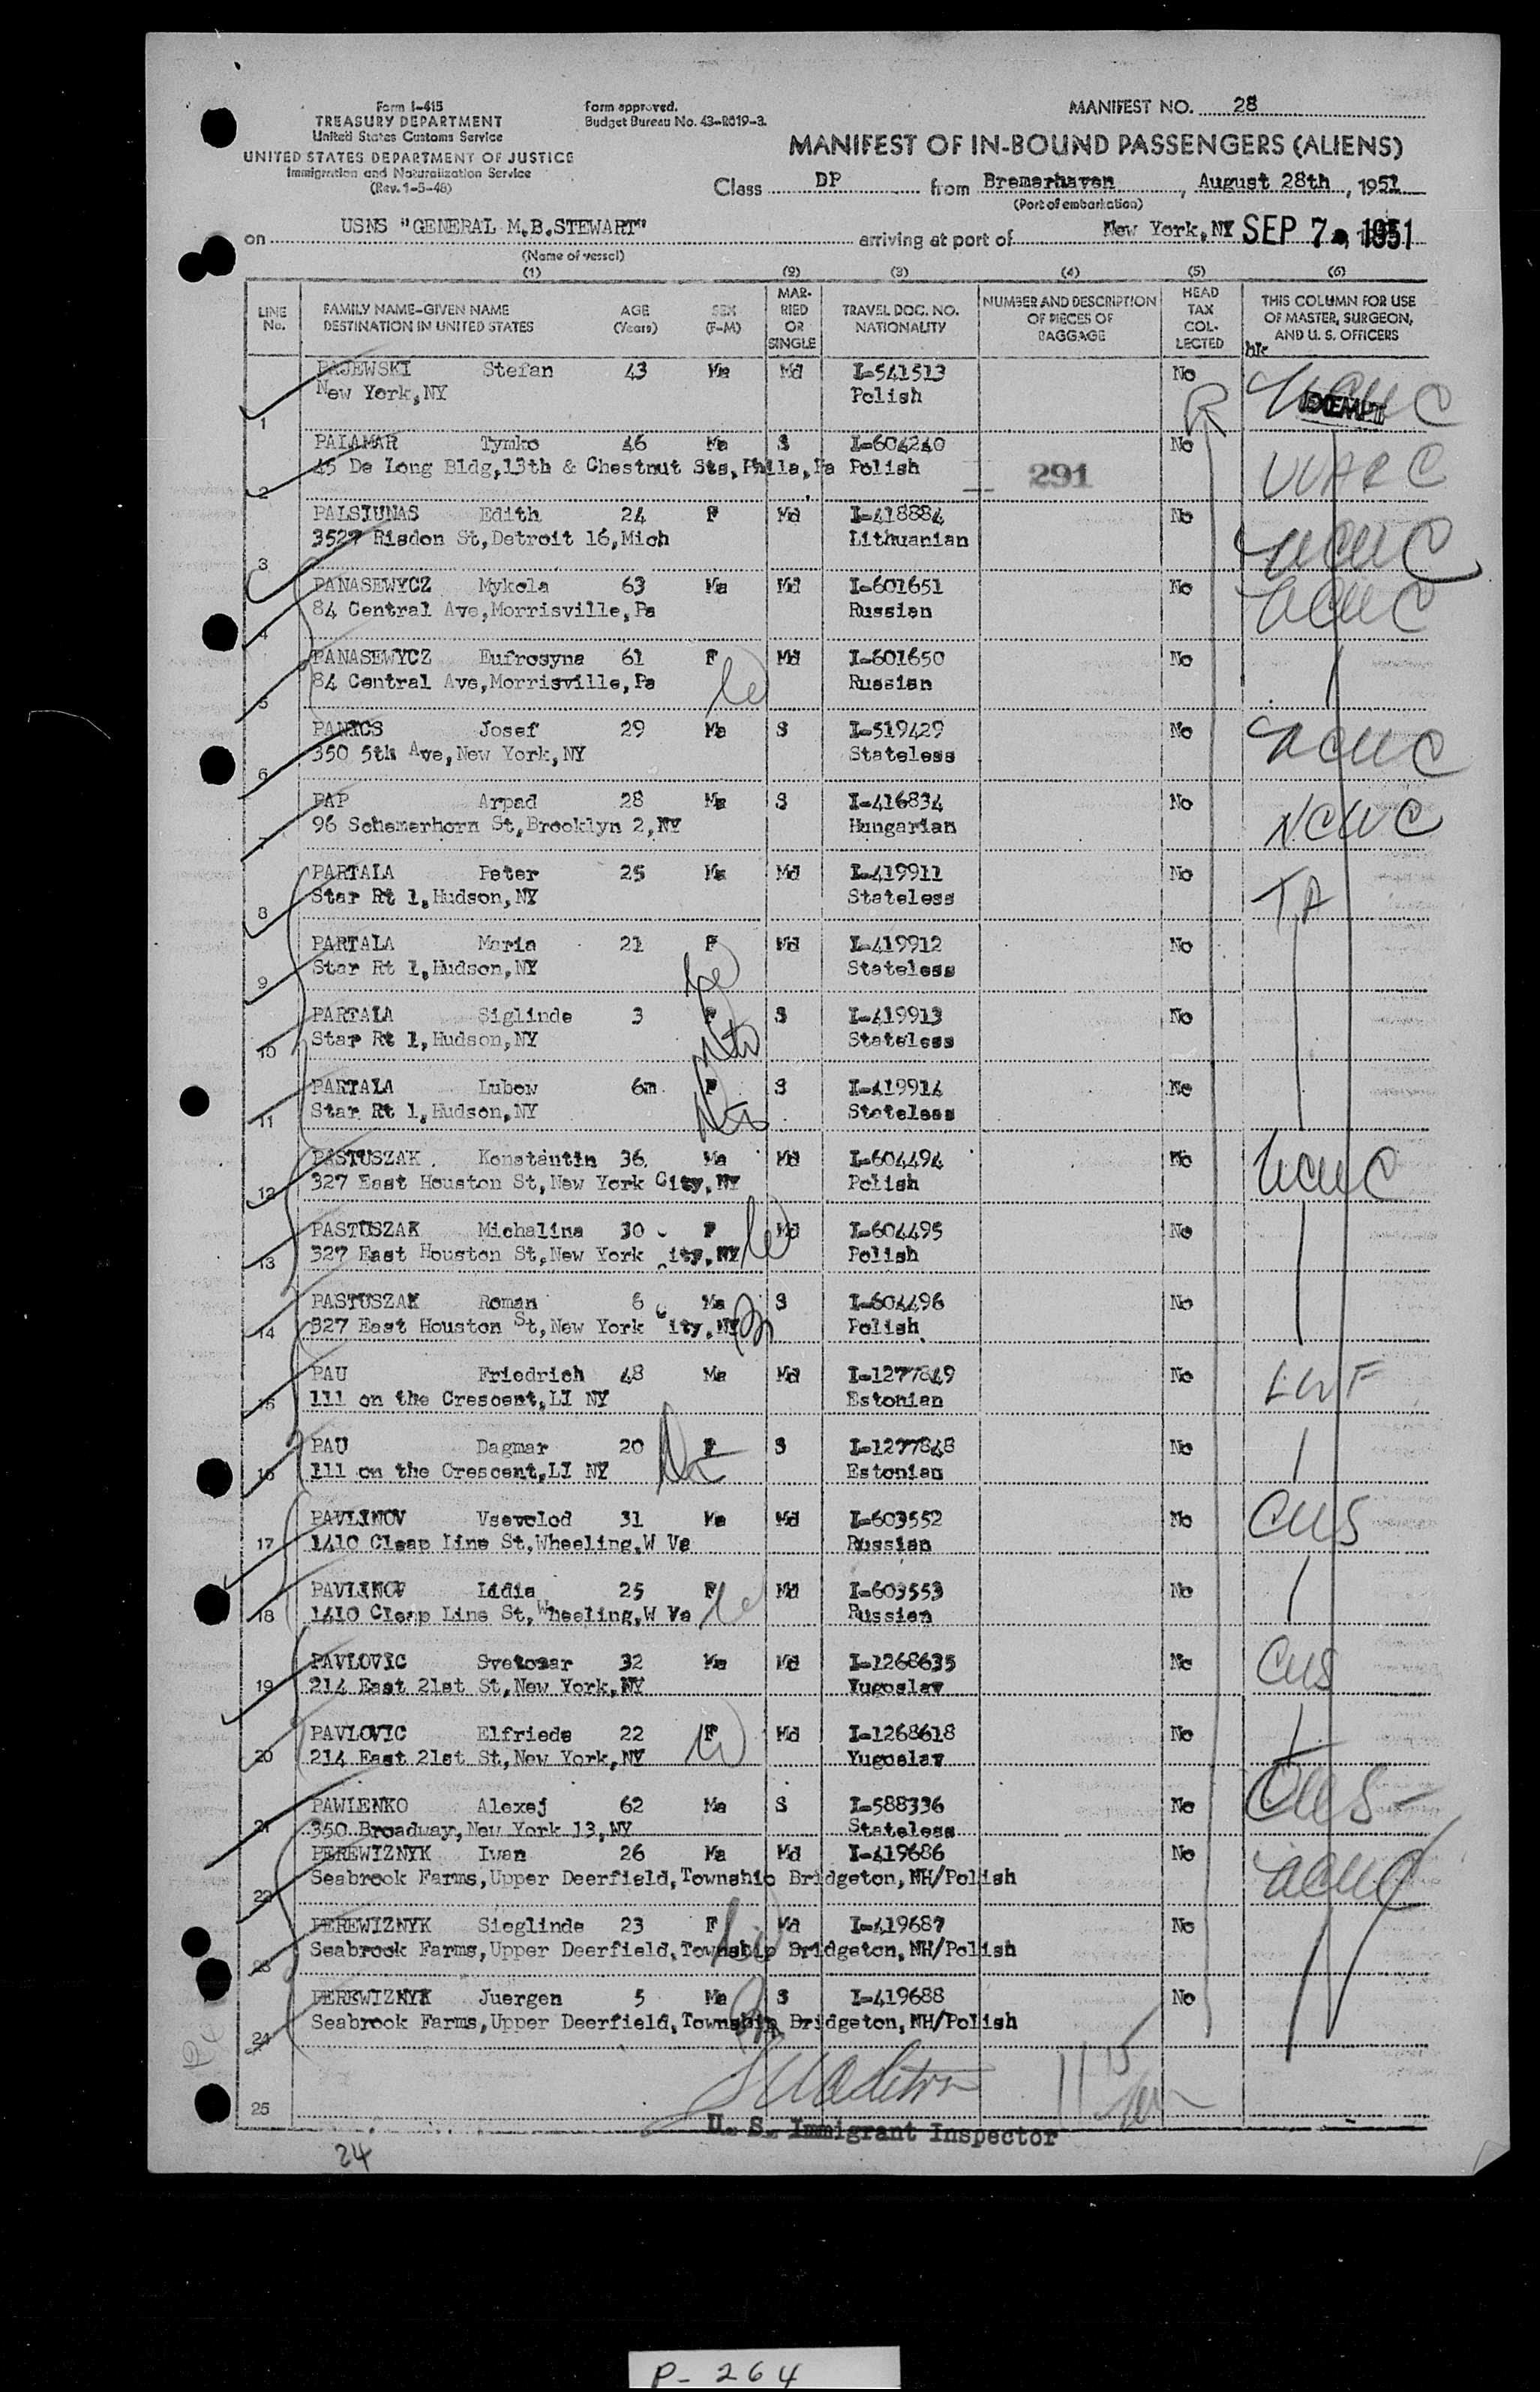 Form I-415
TREASURY DEPARTMENT
United States Customs Service
UNITED STATES DEPARTMENT OF JUSTICE
Immigration and Naturalization Service
(Rev. 1-5-48)
Form approved.
Budget Bureau No. 43-R019-3.
MANIFEST NO. 28
MANIFEST OF IN-BOUND PASSENGERS (ALIENS)
Class DP from Bremerhaven, August 28th, 1951
(Port of embarkation)
on USNS "GENERAL M.B.STEWART" arriving at port of New York,NY SEP 7 1951
(Name of vessel)
(1) (2) (3) (4) (5) (6)
LINE No.
FAMILY NAME-GIVEN NAME
DESTINATION IN UNITED STATES
AGE (Years)
SEX (F-M)
MAR-RIED OR SINGLE
TRAVEL DOC. NO. NATIONALITY
NUMBER AND DESCRIPTION OF PIECES OF BAGGAGE
HEAD TAX COL-LECTED
THIS COLUMN FOR USE OF MASTER, SURGEON, AND U. S. OFFICERS
PAJEWSKI Stefan 43 Ma Md I-541513 No
1 New York,NY Polish EXEMPT
PALAMAR Tymko 46 Ma S I-604240 No
2 45 De Long Bldg,13th & Chestnut Sts,Phila,Pa Polish 291
PALSIUNAS Edith 24 F Md I-418884 No
3 3527 Risdon St,Detroit 16,Mich Lithuanian
PANASEWYCZ Mykola 63 Ma Md I-601651 No
4 84 Central Ave,Morrisville,Pa Russian
PANASEWYCZ Eufrosyna 61 F Md I-601650 No
5 84 Central Ave,Morrisville,Pa Russian
PANICS Josef 29 Ma S I-519429 No
6 350 5th Ave,New York,NY Stateless
PAP Arpad 28 Ma S I-416834 No NCWC
7 96 Schemerhorn St,Brooklyn 2,NY Hungarian
PARTALA Peter 25 Ma Md I-419911 No
8 Star Rt 1,Hudson,NY Stateless
PARTALA Maria 21 F Md I-419912 No
9 Star Rt 1,Hudson,NY Stateless
PARTALA Siglinde 3 F S I-419913 No
10 Star Rt 1,Hudson,NY Stateless
PARTALA Lubow 6m F S I-419914 No
11 Star Rt 1,Hudson,NY Stateless
PASTUSZAK Konstantin 36 Ma Md I-604494 No
12 327 East Houston St,New York City,NY Polish
PASTUSZAK Michalina 30 F Md I-604495 No
13 327 East Houston St,New York ity,NY Polish
PASTUSZAK Roman 6 Ma S I-604496 No
14 327 East Houston St,New York City,NY Polish
PAU Friedrich 48 Ma Md I-1277849 No LWF
15 111 on the Crescent,LI NY Estonian
PAU Dagmar 20 F S I-1277848 No
16 111 on the Crescent,LI NY Estonian
PAVLINOV Vsevolod 31 Ma Md I-603552 No CWS
17 1410 Cleap Line St,Wheeling,W Va Russian
PAVLINOV Lidia 25 F Md I-603553 No
18 1410 Cleap Line St,Wheeling,W Va Russian
PAVLOVIC Svetozar 32 Ma Md I-1268635 No CWS
19 214 East 21st St,New York,NY Yugoslav
PAVLOVIC Elfriede 22 F Md I-1268618 No
20 214 East 21st St,New York,NY Yugoslav
PAWLENKO Alexej 62 Ma S I-588336 No CWS
21 350 Broadway,New York 13,NY Stateless
PEREWIZNYK Iwan 26 Ma Md I-419686 No
22 Seabrook Farms,Upper Deerfield,Township Bridgeton,NH/Polish
PEREWIZNYK Sieglinde 23 F Md I-419687 No
23 Seabrook Farms,Upper Deerfield,Township Bridgeton,NH/Polish
PEREWIZNYK Juergen 5 Ma S I-419688 No
24 Seabrook Farms,Upper Deerfield,Township Bridgeton,NH/Polish
25
U. S. Immigrant Inspector
24
P- 264